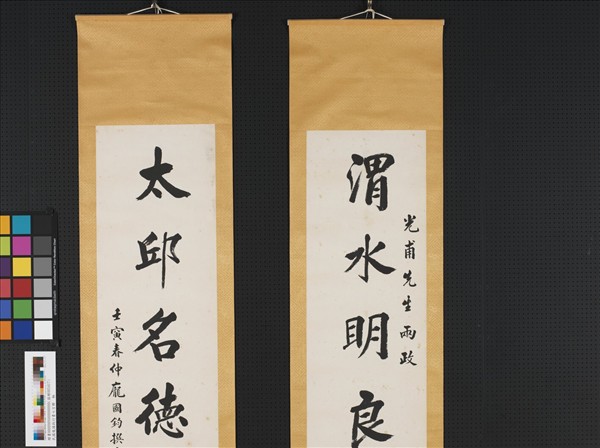 渭水明良
光甫先生兩政
太邱名德
壬寅春仲龐國鈞撰